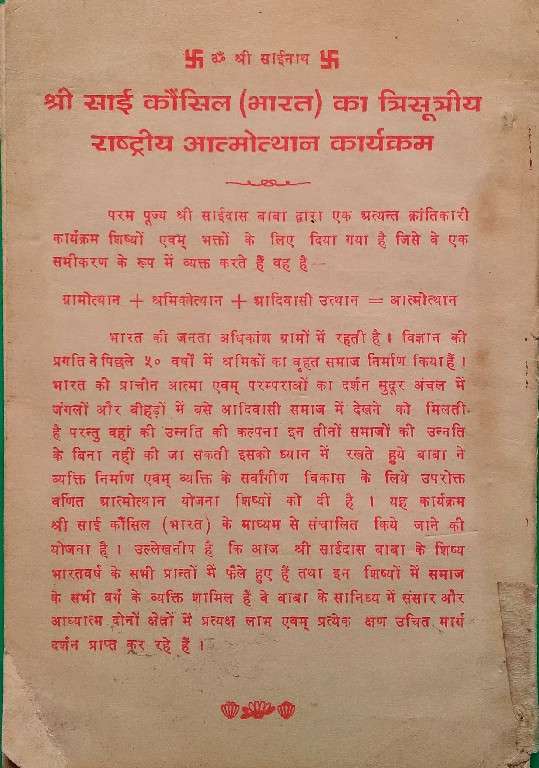 卐 ॐ श्री साईनाथ 卐
श्री साई कौंसिल (भारत) का त्रिसूत्रीय
राष्ट्रीय आत्मोत्थान कार्यक्रम
परम पूज्य श्री साईदास बाबा द्वारा एक अत्यन्त क्रांतिकारी
कार्यक्रम शिष्यों एवम् भक्तों के लिए दिया गया है जिसे वे एक
समीकरण के रूप में व्यक्त करते हैं वह है—
ग्रामोत्थान + श्रमिकोत्थान + आदिवासी उत्थान = आत्मोत्थान
भारत की जनता अधिकांश ग्रामों में रहती है। विज्ञान की
प्रगति ने पिछले ५० वर्षों में श्रमिकों का वृहत समाज निर्माण किया हैं।
भारत की प्राचीन आत्मा एवम् परम्पराओं का दर्शन सुदूर अंचल में
जंगलों और बीहड़ों में बसे आदिवासी समाज में देखने को मिलती
है परन्तु वहां की उन्नति की कल्पना इन तीनों समाजों की उन्नति
के बिना नहीं की जा सकती इसको ध्यान में रखते हुये बाबा ने
व्यक्ति निर्माण एवम् व्यक्ति के सर्वांगीण विकास के लिये उपरोक्त
वर्णित आत्मोत्थान योजना शिष्यों को दी है । यह कार्यक्रम
श्री साई कौंसिल (भारत) के माध्यम से संचालित किये जाने की
योजना है । उल्लेखनीय है कि आज श्री साईदास बाबा के शिष्य
भारतवर्ष के सभी प्रान्तों में फैले हुए हैं तथा इन शिष्यों में समाज
के सभी वर्ग के व्यक्ति शामिल हैं वे बाबा के सानिध्य में संसार और
आध्यात्म दोनों क्षेत्रों में प्रत्यक्ष लाभ एवम् प्रत्येक क्षण उचित मार्ग
दर्शन प्राप्त कर रहे हैं ।